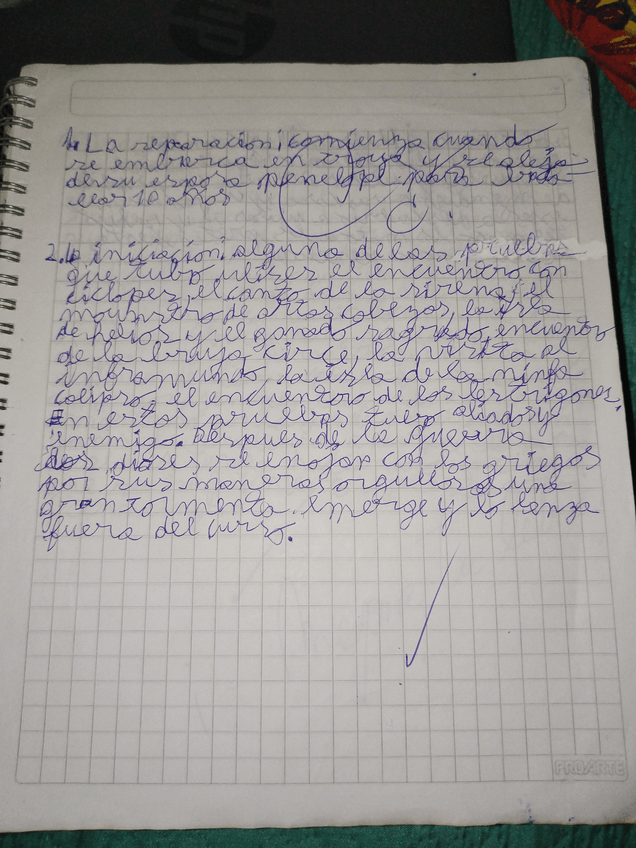 1. La reparacion: comienza cuando
se embarca en troya y se aleja
de su esposa penelope para
10 años
2. la iniciacion: alguna de las pruebas
que tubo ulises el encuentro con
ciclopes, el canto de la sirena, el
mounstro de artas cabezas, la isla
de helios y el ganado sagrado, encuentro
de la bruja circe, la visita al
inframundo, la isla de la ninfa
calipso, el encuentro de los lestrigones,
En estas pruebas tuvo aliados y
enemigo. Despues de la guerra
los dioses se enojan con los griegos
por sus maneras orgullosas una
gran tormenta emerge y lo lanza
fuera del curso.
PRUARTE
hp